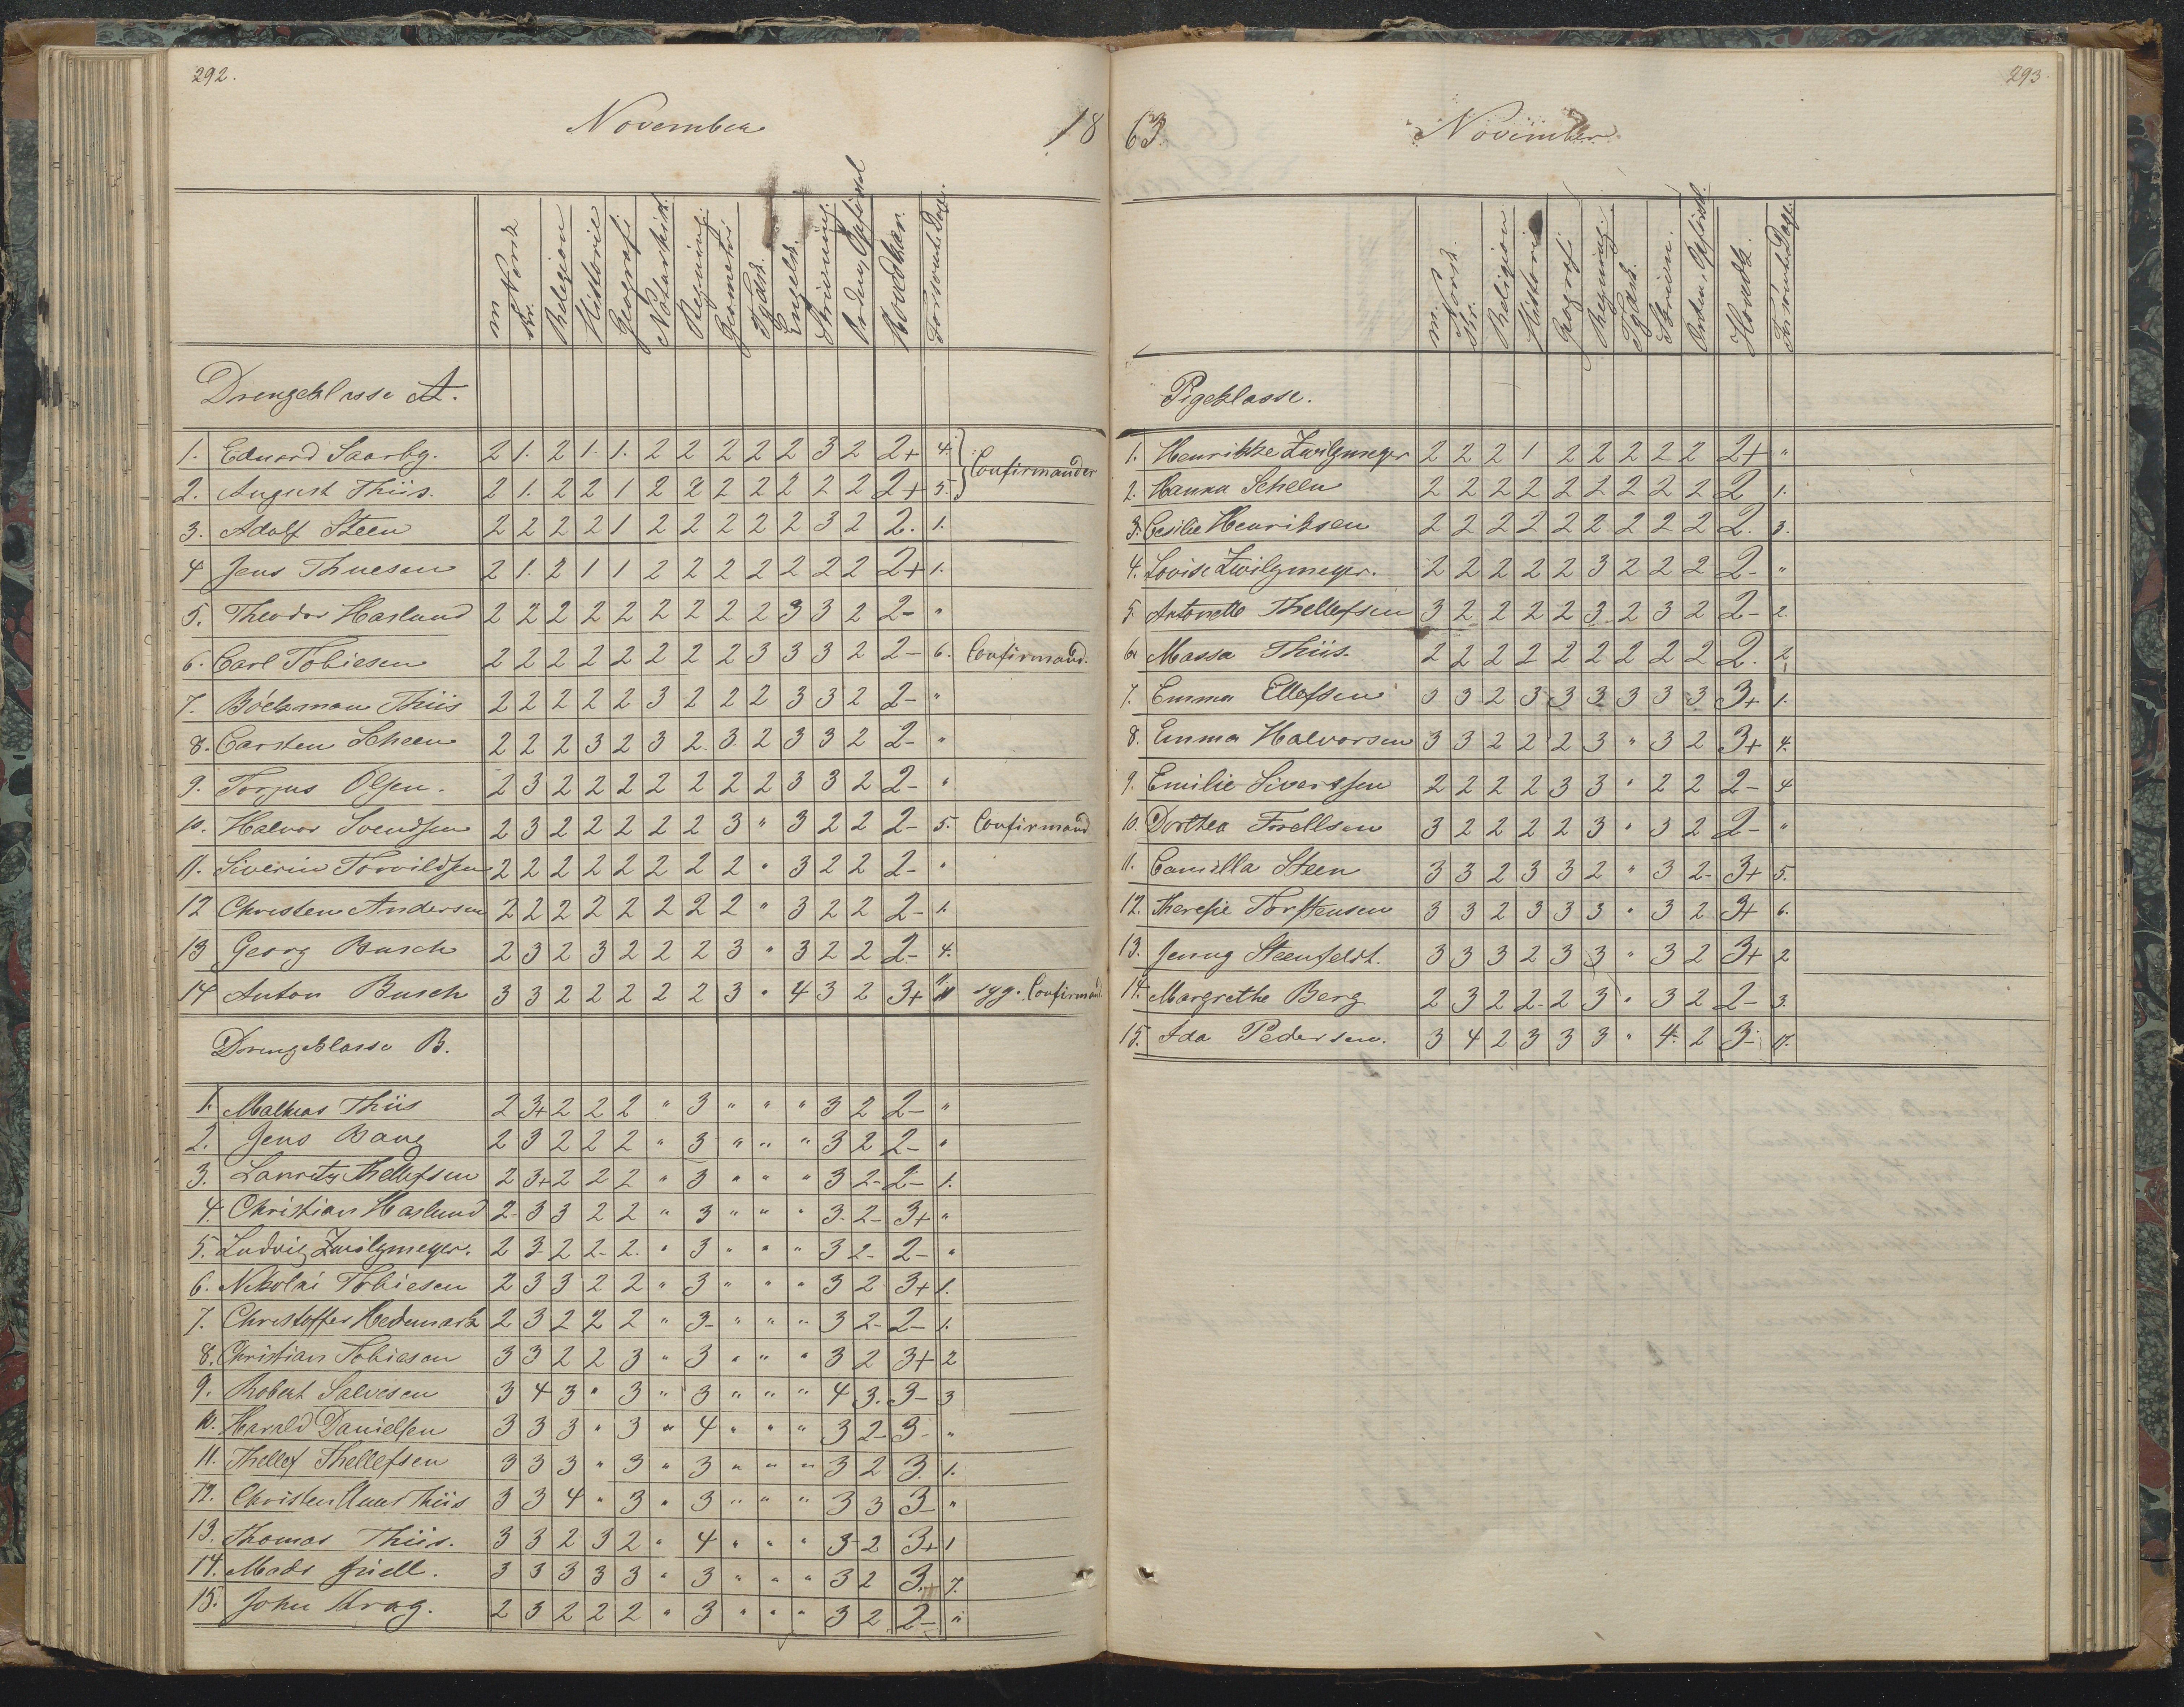 292.
November
18
m.
Norsk
skr.
Religion
Historie
Geografi
Naturhist.
Regning.
Geometri
Tydsk.
Engelsk.
Skrivning.
Orden, Opførsel
Hovedkar.
Forsømte Dage.
Drengeklasse A.
1. Eduard Saarbg. 2 1. 2 1. 1. 2 2 2 2 2 3 2 2+ 4.
Confirmander
2. August Thiis. 2 1. 2 2 1 2 2 2 2 2 2 2 2+ 5.
3. Adolf Steen 2 2 2 2 1 2 2 2 2 2 3 2 2. 1.
4 Jens Thuesen 2 1. 2 1 1 2 2 2 2 2 2 2 2+ 1.
5. Theodor Haslund 2 2 2 2 2 2 2 2 2 3 3 2 2- "
6. Carl Tobiesen 2 2 2 2 2 2 2 2 3 3 3 2 2- 6. Confirmand.
7. Böckman Thiis 2 2 2 2 2 3 2 2 2 3 3 2 2- "
8. Carsten Scheen 2 2 2 3 2 3 2 3 2 3 3 2 2- "
9. Torjus Olsen. 2 3 2 2 2 2 2 2 2 3 3 2 2- "
10. Halvor Svendsen 2 3 2 2 2 2 2 3 " 3 2 2 2- 5. Confirmand
11. Siverin Torvildsen 2 2 2 2 2 2 2 2 " 3 2 2 2- "
12 Christen Andersen 2 2 2 2 2 2 2 2 " 3 2 2 2- 1.
13 Georg Busch 2 3 2 3 2 2 2 3 " 3 2 2 2- 4.
14 Anton Busch 3 3 2 2 2 2 2 3 " 4 3 2 3+ 11 syg. Confirmand
Drengeklasse B.
1. Mathias Thiis 2 3+ 2 2 2 " 3 " " " 3 2 2- "
2. Jens Bang 2 3 2 2 2 " 3 " " " 3 2 2- "
3. Lauritz Thellefsen 2 3+ 2 2 2 " 3 " " " 3 2- 2- 1.
4. Christian Haslund 2- 3 3 2 2 " 3 " " " 3- 2- 3+ "
5. Ludvig Zwilgmeyer. 2 3- 2 2- 2. " 3 " " " 3 2- 2- "
6. Nikolai Tobiesen 2 3 3 2 2 " 3 " " " 3 2 3+ 1.
7. Christoffer Hedemark 2 3 2 2 2 " 3- " " " 3 2- 2- 1.
8. Christian Tobiesen 3 3 2 2 3 " 3 " " " 3 2 3+ 2
9. Robert Salvesen 3 4 3 " 3 " 3 " " " 4 3. 3- 3
10. Harald Danielsen 3 3 3 " 3 " 4 " " " 3 2- 3- "
11. Thellef Thellefsen 3 3 3 " 3 " 3 " " " 3 2 3. 1.
12. Christen Thiis 3 3 4 " 3 " 3 " " " 3 3 3- "
13. Thomas Thiis. 3 3 2 3 2 " 4 " " " 3 2 3+ 1
14. Mads Juell. 3 3 3 3 3 " 3 " " " 3 2 3+ 7.
15. John Krag. 2 3 2 2 2 " 3 " " " 3 2 2- "
293.
63.
November
m.
Norsk.
skr.
Religion
Historie
Geografi
Regning.
Tydsk.
Skrivn.
Orden, Opførsel.
Hovedk.
Forsømte Dage.
Pigeklasse.
1. Henrikke Zwilgmeyer 2 2 2 1 2 2 2 2 2 2+ "
2. Hanna Scheen 2 2 2 2 2 2 2 2 2 2 1.
3. Cesilie Henriksen 2 2 2 2 2 2 2 2 2 2. 3.
4. Lovise Zwilgmeyer. 2 2 2 2 2 3 2 2 2 2- "
5. Antonette Thellefsen 3 2 2 2 2 3 2 3 2 2- 2.
6. Massa Thiis. 2 2 2 2 2 2 2 2 2 2. 2
7. Emma Ellefsen 3 3 2 3 3 3 3 3 3 3+ 1.
8. Emma Halvorsen 3 3 2 2 2 3 " 3 2 3+ 4.
9. Emilie Sivertsen 2 2 2 2 3 3 " 2 2 2- 4
10. Dorthea Forellsen 3 2 2 2 2 3 " 3 2 2- "
11. Camilla Steen 3 3 2 3 3 2 " 3 2- 3+ 5.
12. Theresie Torstensen 3 3 2 3 3 3 " 3 2 3+ 6.
13. Jenny Steenfeldt. 3 3 3 2 3 3 " 3 2 3+ 2
14. Margrethe Berg 2 3 2 2- 2 3 " 3 2 2- 3.
15. Ida Pedersen. 3 4 2 3 3 3 " 4. 2 3-